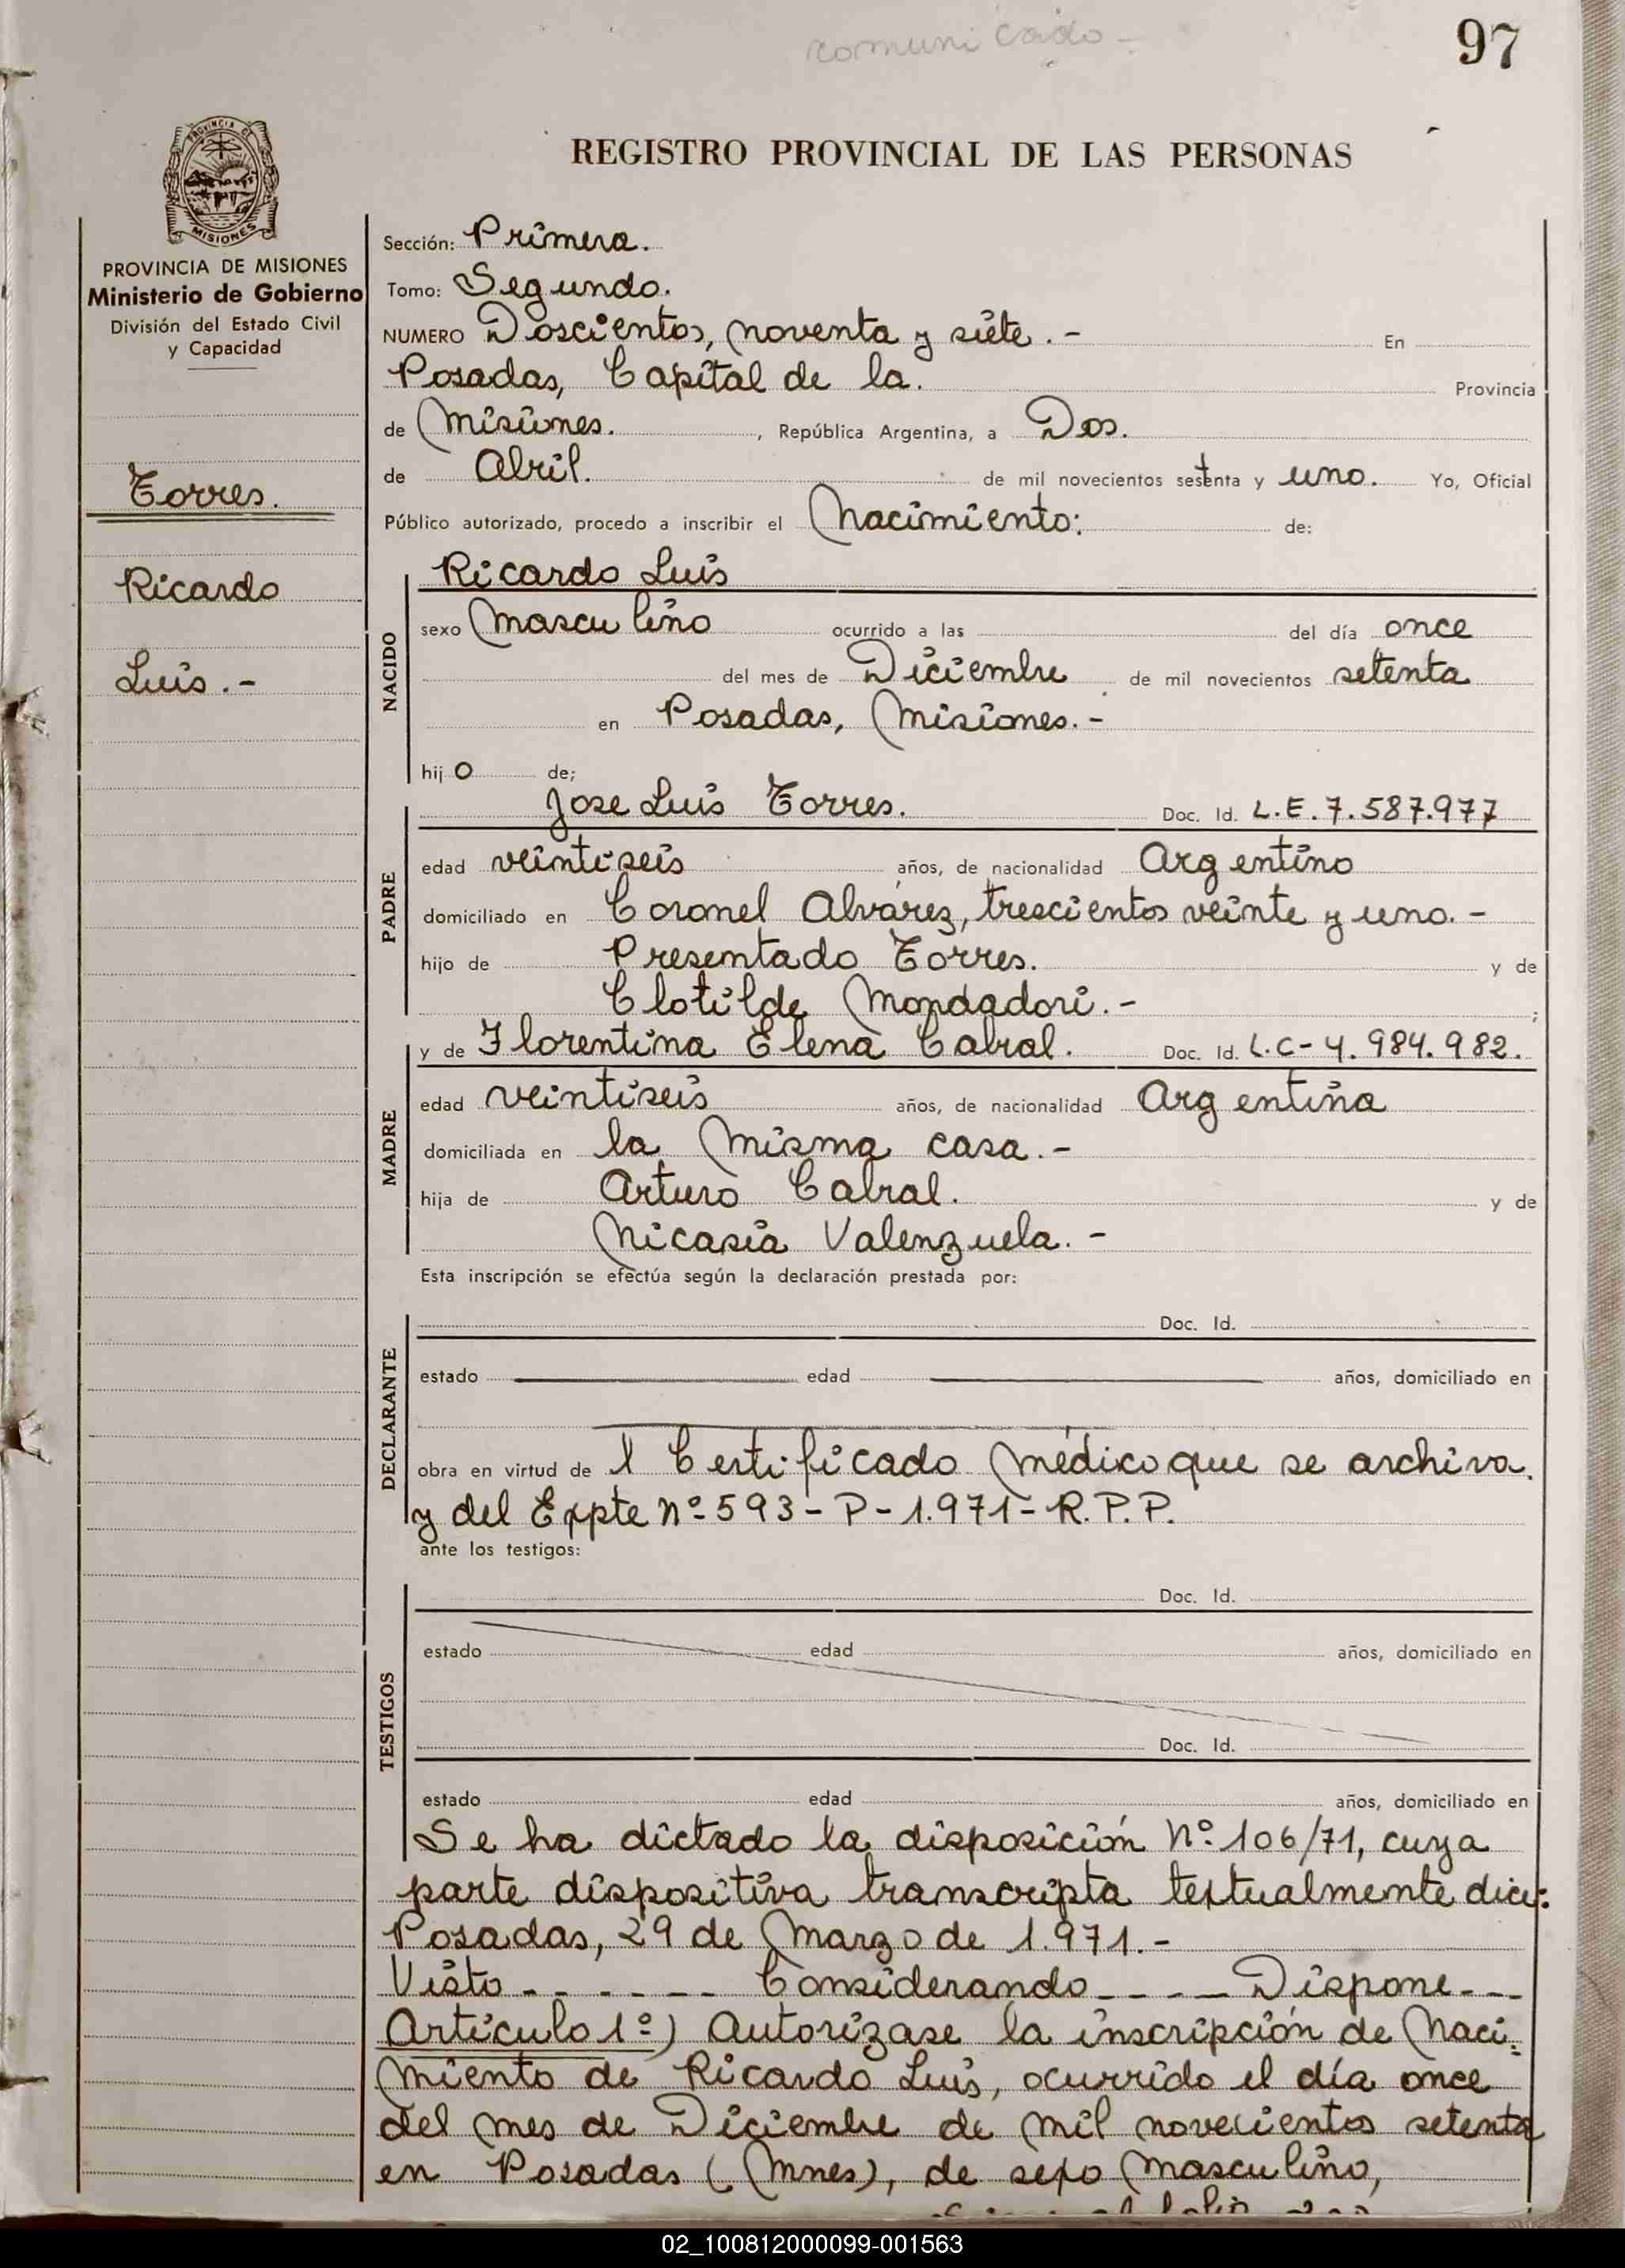 comunicado-
97
PROVINCIA DE
MISIONES
REGISTRO PROVINCIAL DE LAS PERSONAS
PROVINCIA DE MISIONES
Ministerio de Gobierno
División del Estado Civil
y Capacidad
Torres.
Ricardo
Luis.-
Sección: Primera.
Tomo: Segundo.
NUMERO Doscientos, noventa y siete.- En
Posadas, Capital de la. Provincia
de Misiones. , República Argentina, a Dos.
de Abril. de mil novecientos setenta y uno. Yo, Oficial
Público autorizado, procedo a inscribir el Nacimiento: de:
NACIDO
Ricardo Luis
sexo Masculino ocurrido a las del día once
del mes de Diciembre de mil novecientos setenta
en Posadas, Misiones.-
hijo de;
PADRE
Jose Luis Torres. Doc. Id. L.E. 7.587.977
edad veintiseis años, de nacionalidad Argentino
domiciliado en Coronel Alvárez, trescientos veinte y uno.-
hijo de Presentado Torres. y de
Clotilde Mondadori.- ;
MADRE
y de Florentina Elena Cabral. Doc. Id. L.C- 4.984.982.
edad veintiseis años, de nacionalidad Argentina
domiciliada en la misma casa.-
hija de Arturo Cabral. y de
Nicasia Valenzuela.-
Esta inscripción se efectúa según la declaración prestada por:
DECLARANTE
Doc. Id.
estado edad años, domiciliado en
obra en virtud de l Certificado Médico que se archiva.
y del Expte Nº 593- P- 1.971- R.P.P.
ante los testigos:
TESTIGOS
Doc. Id.
estado edad años, domiciliado en
Doc. Id.
estado edad años, domiciliado en
Se ha dictado la disposición Nº 106/71, cuya
parte dispositiva transcripta textualmente dice:
Posadas, 29 de Marzo de 1.971.-
Visto - - - - - - Considerando - - - - Dispone - - -
Artículo 1º) Autorizase la inscripción de Naci=
miento de Ricardo Luis, ocurrido el día once
del mes de Diciembre de mil novecientos setenta
en Posadas (Mnes), de sexo Masculino,
02_100812000099-001563